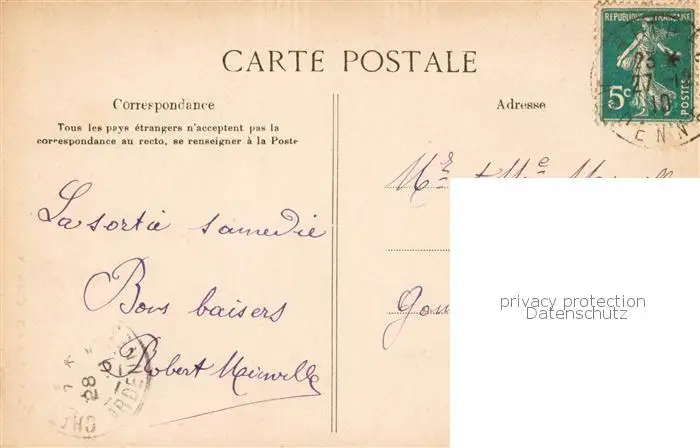 CARTE POSTALE
Correspondance
Tous les pays étrangers n'acceptent pas la
correspondance au recto, se renseigner à la Poste
La sortie samedie
Bons baisers
Robert
Adresse
Mr & Mme
REPUBLIQUE FRANÇAISE
5c
POSTES
23 *
27
10
28
privacy protection
Datenschutz